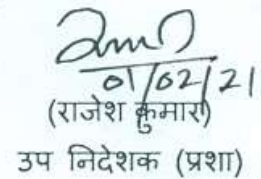 01/02/21
(राजेश कुमार)
उप निदेशक (प्रशा)